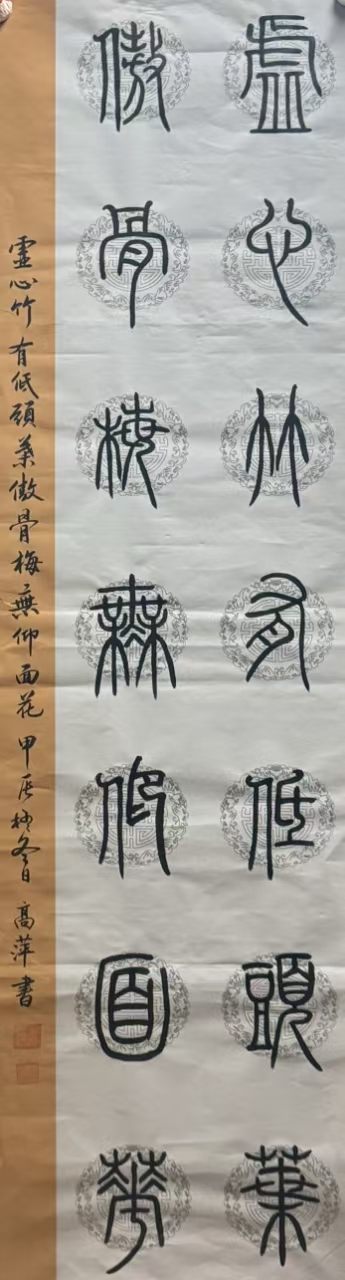 虛心竹有低頭葉
傲骨梅無仰面花
虛心竹有低頭葉傲骨梅無仰面花 甲辰初冬日 高萍書